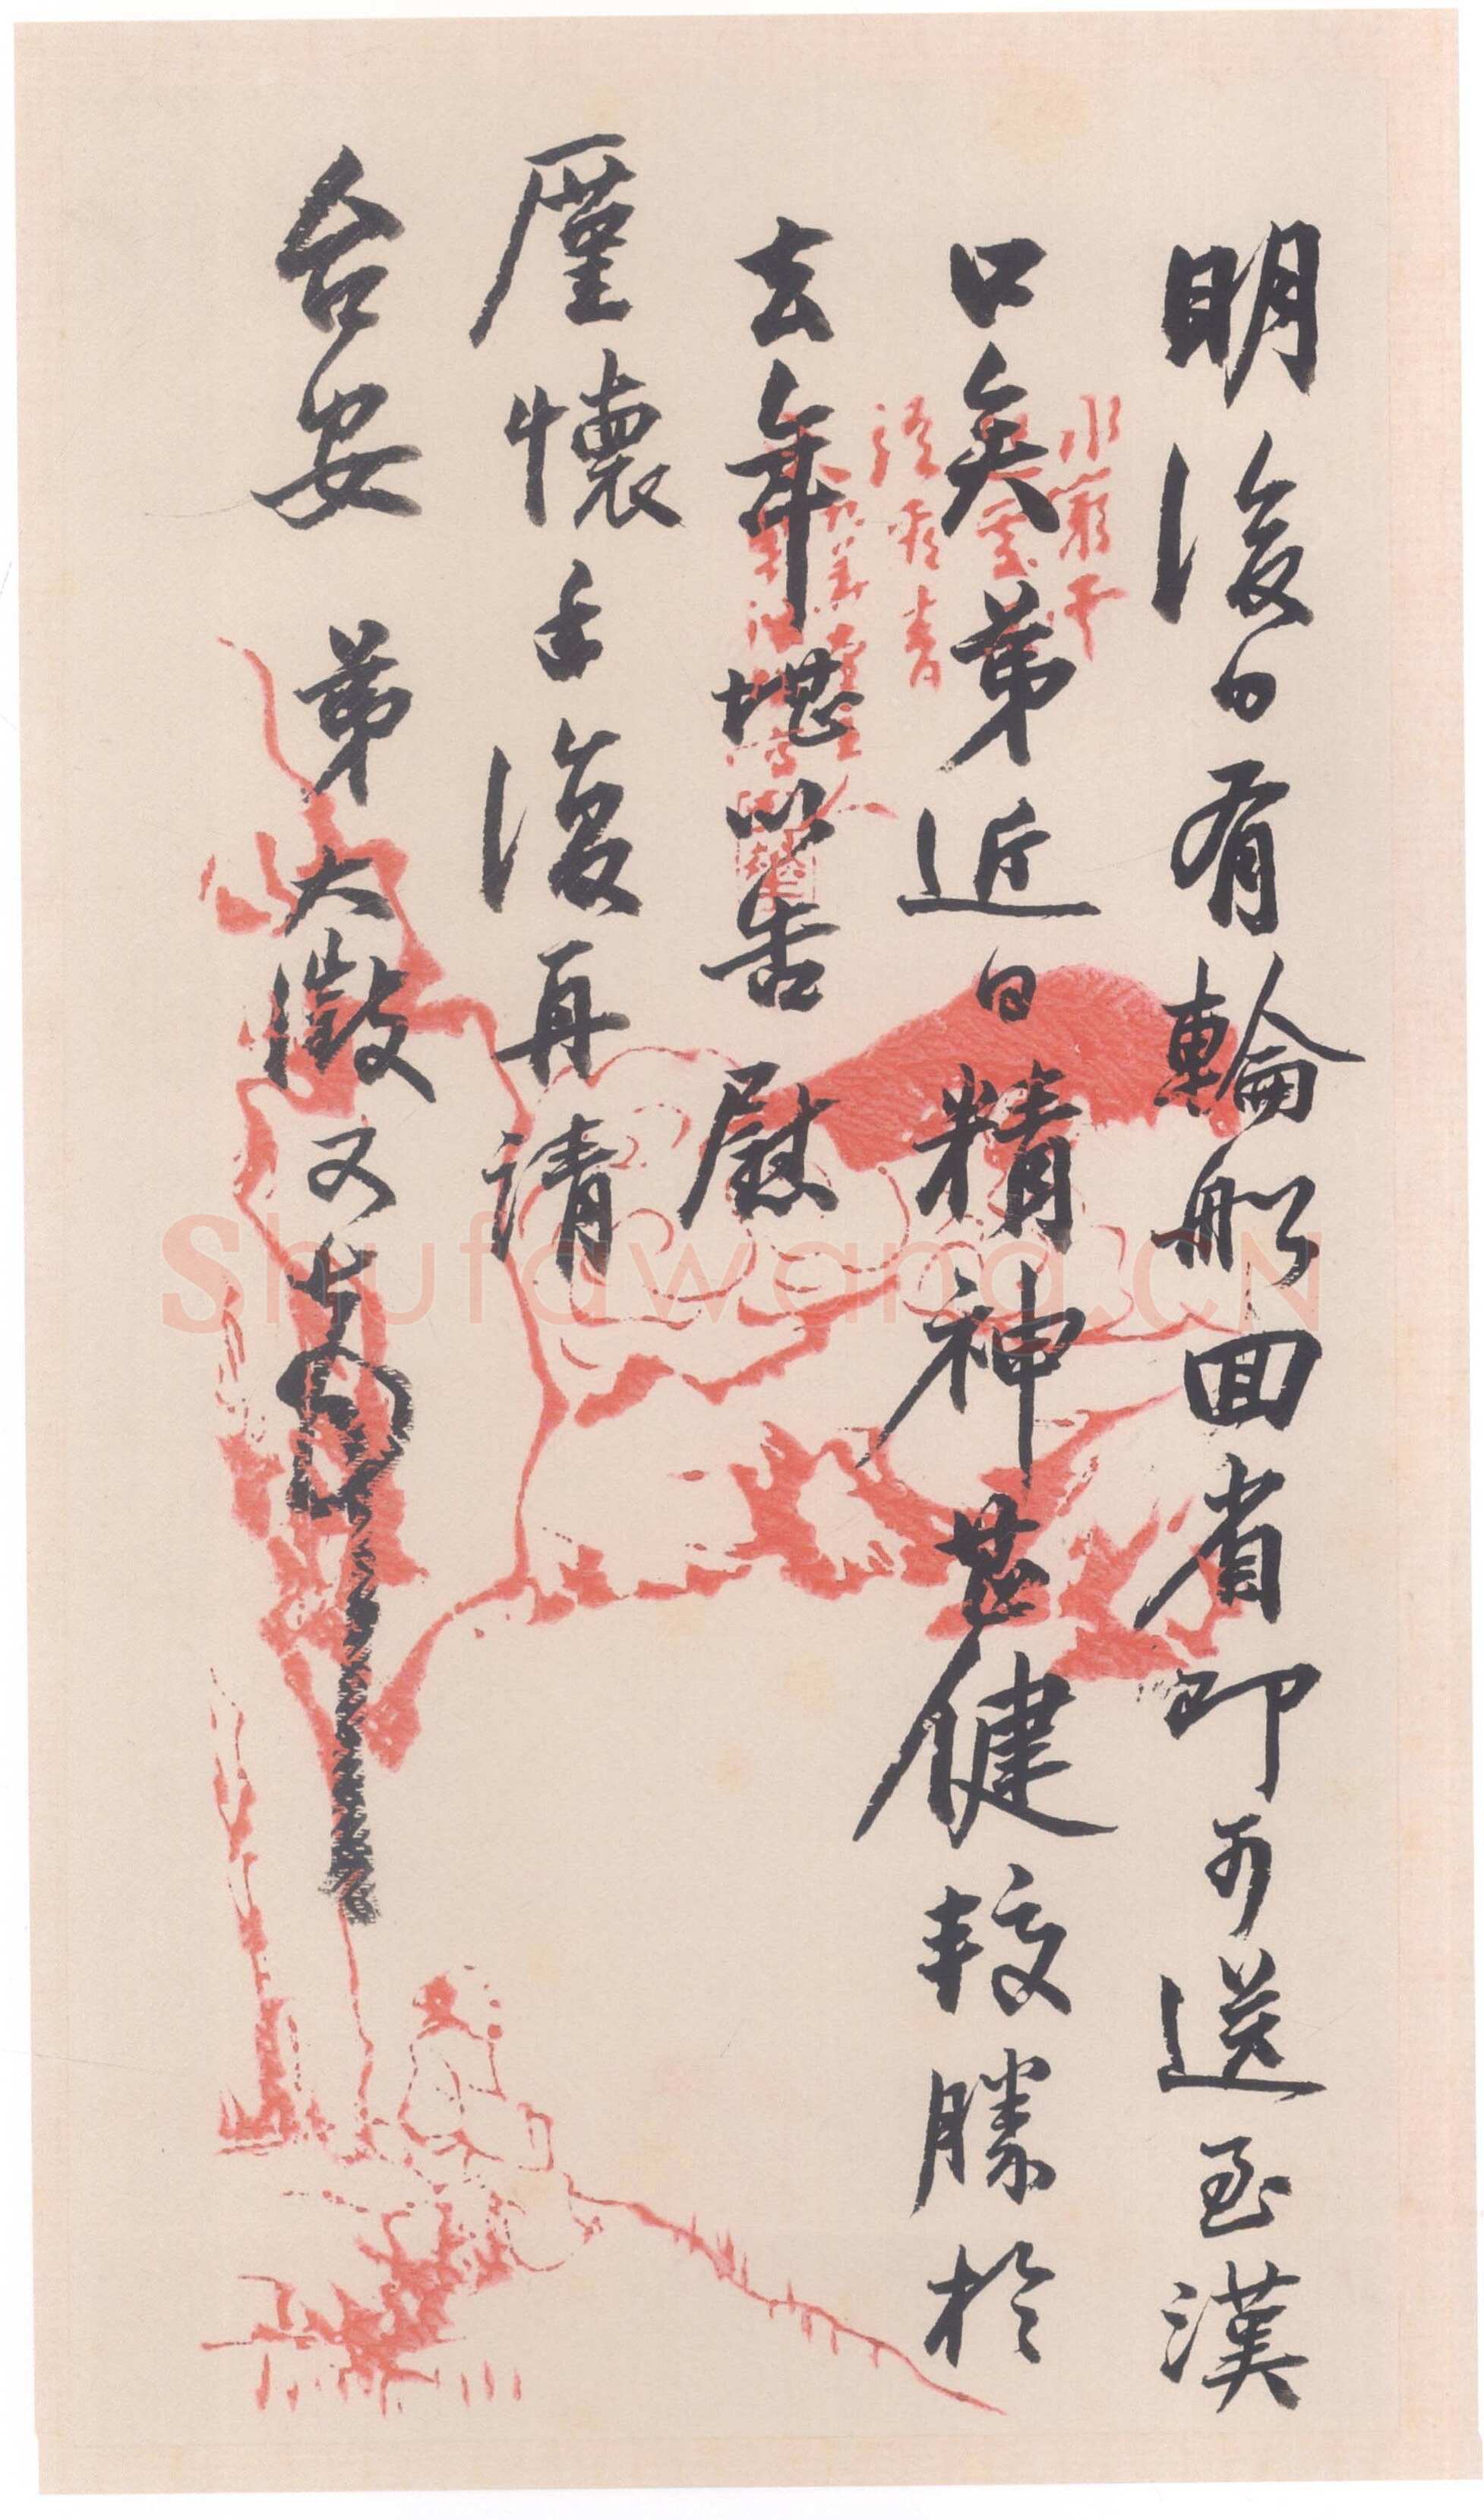 明後日有輪船回省即可送至漢
口矣弟近日精神甚健較勝於
去年堪以告慰
廑懷手復再請
台安 弟大澂又頓
水窮
Shufawang.CN